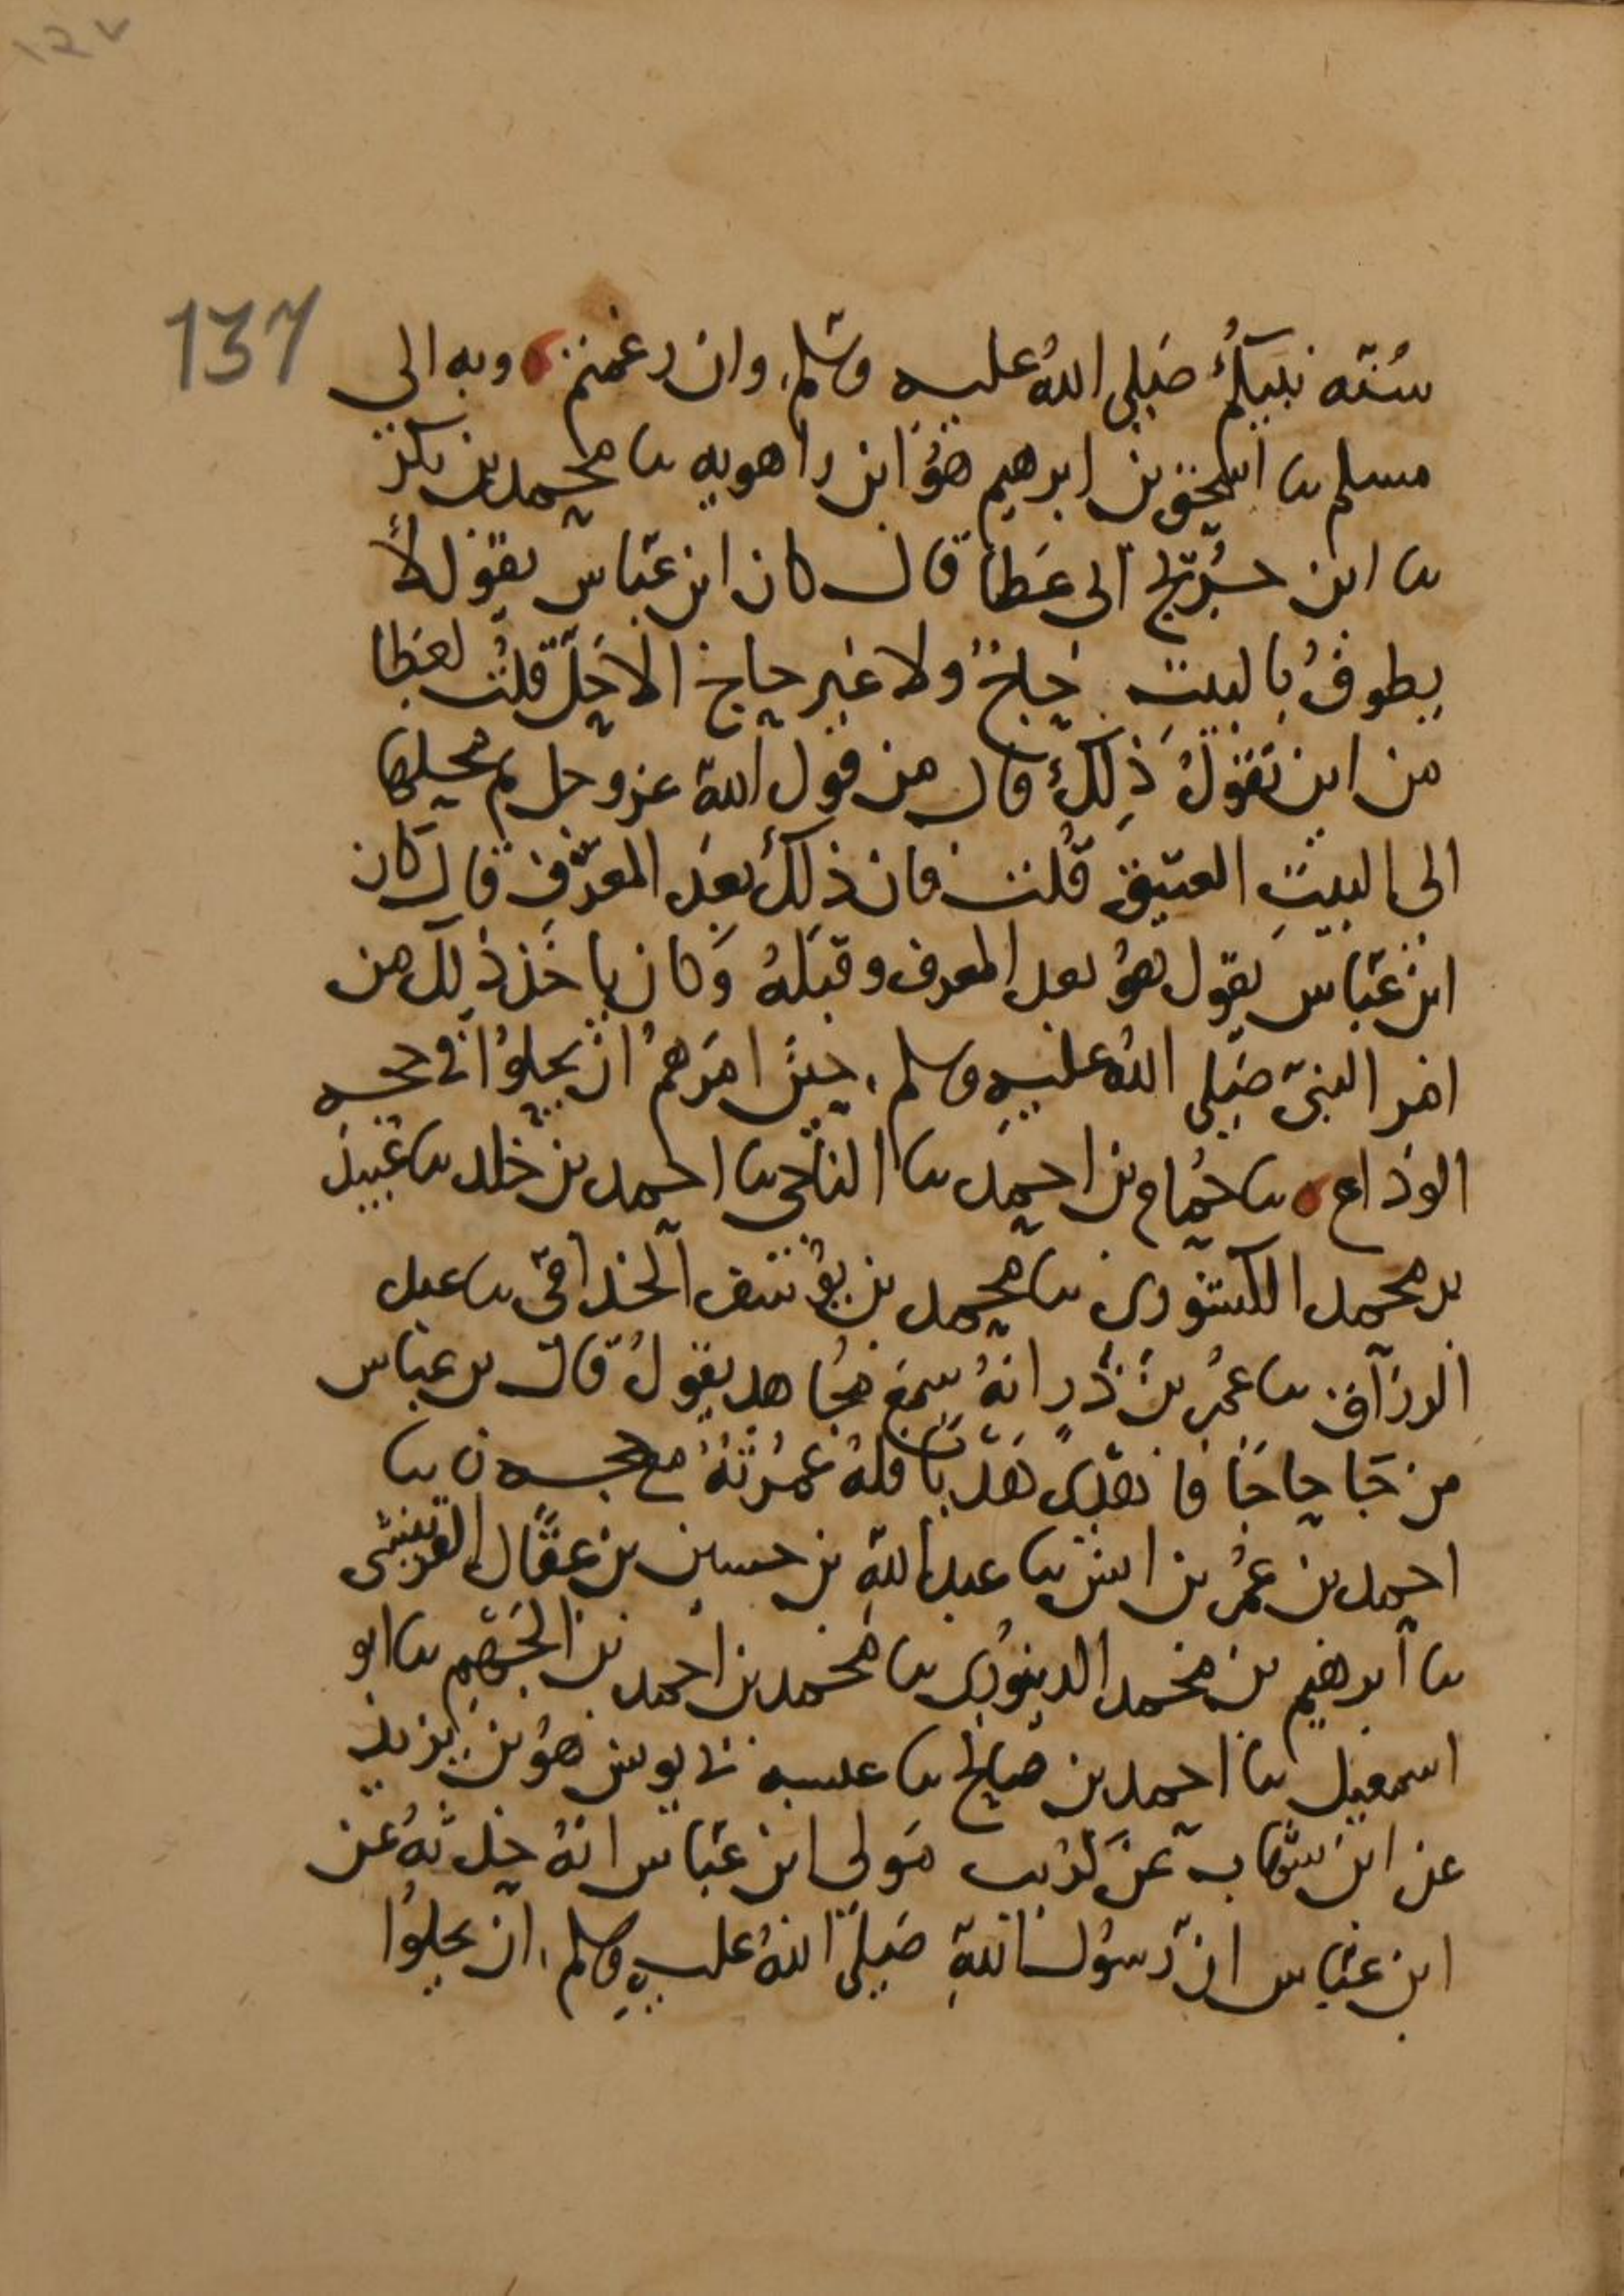 ١٣٧
137
سنته نبيكم صلى الله عليه وسلم وان رغمتم ه وبه الى
مسلم ىا اسحق بن ابرهيم هو ابن راهويه ىا محمد بن بكر
ىا ابن جريج انى عطا قال كان ابن عباس يقول لا
يطوف بالبيت حاج ولا غير حاج الا حل قلت لعطا
من اين تقول ذلك قال من قول الله عز وجل ثم محلها
الى البيت العتيق قلت فان ذلك بعد المعرف قال كان
ابن عباس يقول هو بعد المعرف وقبله وكان ياخذ ذلك من
امر النبي صلى الله عليه وسلم حين امرهم ان يحلوا في حجه
الوداع ه ىا حمام بن احمد ىا الباجي ىا احمد بن خلد ىا عبيد
بن محمد الكشوري ىا محمد بن يوسف الحذاقي ىا عبد
الرزاق ىا عمر بن ذر انه سمع مجاهد يقول قال بن عباس
من جا حاجا فاهدى هديا فله عمرته مع حجه ن ىا
احمد بن عمر بن انس ىا عبد الله بن حسين بن عقال القرينشى
ىا ابرهيم بن محمد الدينوري ىا محمد بن احمد بن الجهم ىا ابو
اسمعيل ىا احمد بن صالح ىا عنبسه ني يونس هو بن يزيد
عن ابن شهاب عن كريب مولى ابن عباس انه حدثه عن
ابن عباس ان رسول الله صلى الله عليه وسلم ان يحلوا